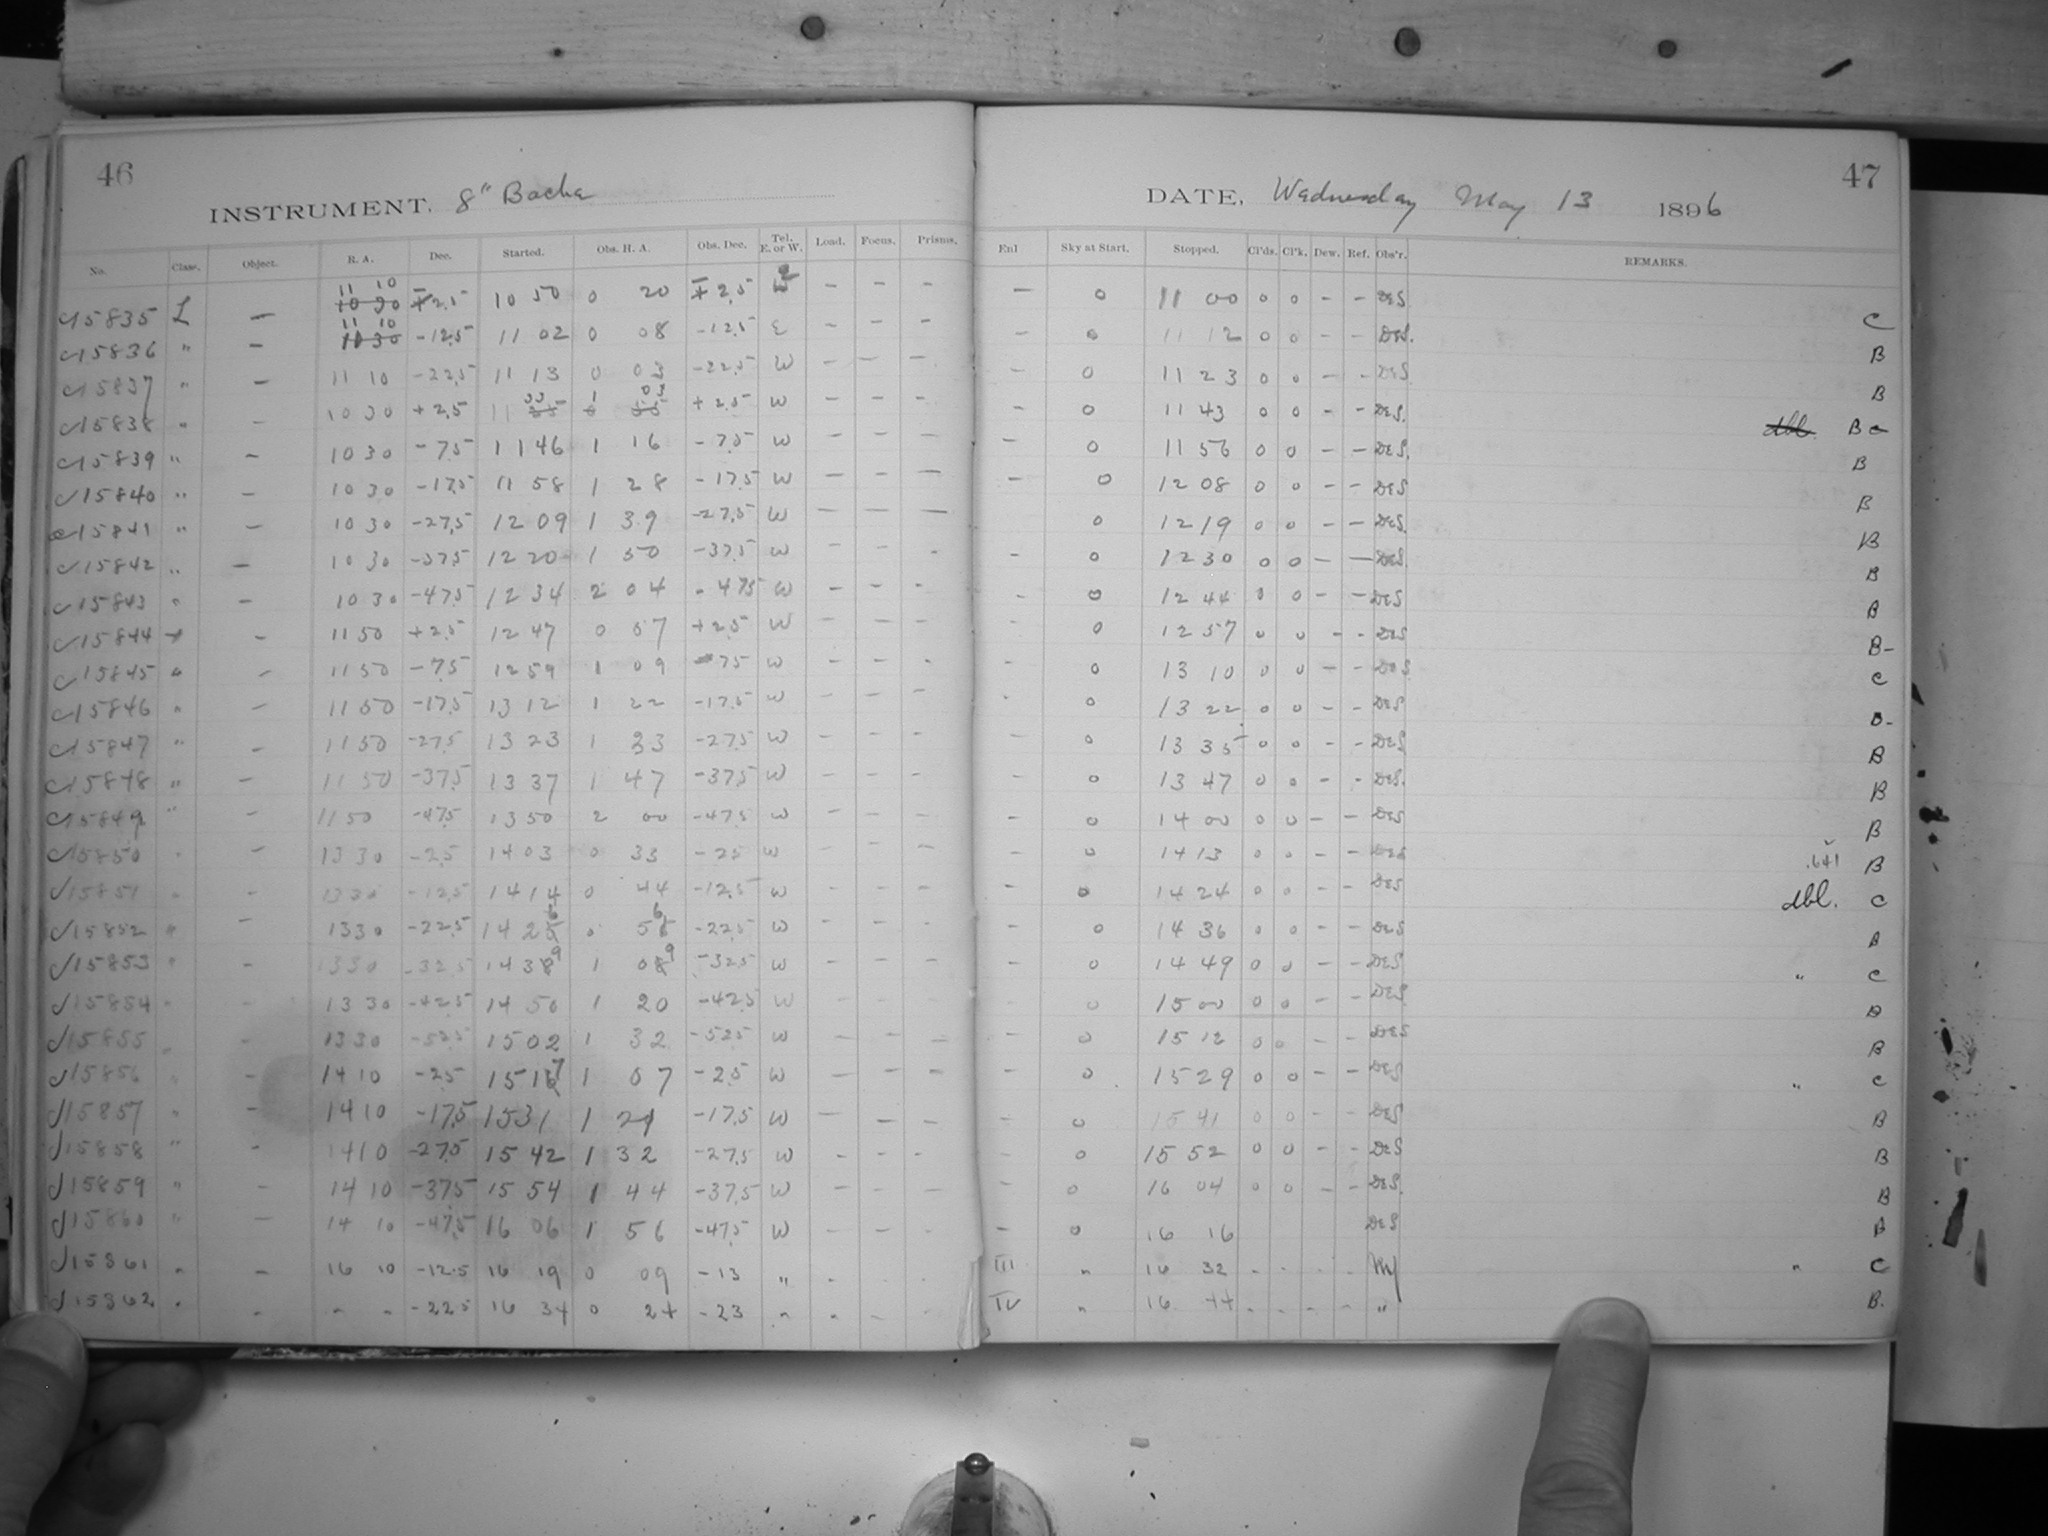 46
INSTRUMENT, 8" Bache
No. Class. Object. R. A. Dec. Started. Obs. H. A. Obs. Dec. Tel. E. or W. Load. Focus. Prisms.
15835 L — 11 10 10 30 2.5 10 50 0 20 2.5 — — —
15836 " — 11 10 11 30 -12.5 11 02 0 08 -12.5 E — — —
15837 " — 11 10 -22.5 11 13 0 03 -22.5 W — — —
15838 " — 10 30 +2.5 11 33 1 03 +2.5 W — — —
15839 " — 10 30 -7.5 11 46 1 16 -7.5 W — — —
15840 " — 10 30 -17.5 11 58 1 28 -17.5 W — — —
15841 " — 10 30 -27.5 12 09 1 39 -27.5 W — — —
15842 " — 10 30 -37.5 12 20 1 50 -37.5 W — — -
15843 " — 10 30 -47.5 12 34 2 04 -47.5 W — - -
15844 — 11 50 +2.5 12 47 0 57 +2.5 W — — -
15845 " — 11 50 -7.5 12 59 1 09 -7.5 W — — -
15846 " — 11 50 -17.5 13 12 1 22 -17.5 W — — -
15847 " — 11 50 -27.5 13 23 1 33 -27.5 W — — -
15848 " — 11 50 -37.5 13 37 1 47 -37.5 W — — -
15849 " — 11 50 -47.5 13 50 2 00 -47.5 W — - -
15850 " — 13 30 -2.5 14 03 0 33 -2.5 W — - -
15851 " - 13 30 -12.5 14 14 0 44 -12.5 W — - —
15852 " — 13 30 -22.5 14 26 0 56 -22.5 W — - —
15853 " - 13 30 -32.5 14 39 1 09 -32.5 W — - —
15854 " - 13 30 -42.5 14 50 1 20 -42.5 W - - —
15855 " - 13 30 -52.5 15 02 1 32 -52.5 W — — —
15856 " - 14 10 -2.5 15 17 1 07 -2.5 W — — —
15857 " - 14 10 -17.5 15 31 1 21 -17.5 W — — —
15858 " - 14 10 -27.5 15 42 1 32 -27.5 W - - -
15859 " - 14 10 -37.5 15 54 1 44 -37.5 W — - —
15860 " — 14 10 -47.5 16 06 1 56 -47.5 W — - —
15861 " — 16 10 -12.5 16 19 0 09 -13 " - - -
15862 " - " " -22.5 16 34 0 24 -23 " - - -
47
DATE, Wednesday May 13 1896
Enl Sky at Start. Stopped. Cl'ds. Cl'k. Dew. Ref. Obs'r. REMARKS.
— 0 11 00 0 0 - - DES. C
— 0 11 12 0 0 - - DES. B
— 0 11 23 0 0 - - DES. B
— 0 11 43 0 0 - - DES. dbl. B
— 0 11 56 0 0 - - DES. B
— 0 12 08 0 0 - - DES B
0 12 19 0 0 - - DES. B
- 0 12 30 0 0 - — DES. B
- 0 12 44 0 0 - - DES B
- 0 12 57 0 0 - - DES B-
- 0 13 10 0 0 - - DES C
- 0 13 22 0 0 - - DES B-
- 0 13 35 0 0 - - DES B
- 0 13 47 0 0 - - DES. B
- 0 14 00 0 0 - - DES B
- 0 14 13 0 0 - - DES .641 B
- 0 14 24 0 0 - - DES dbl. C
- 0 14 36 0 0 - - DES B
- 0 14 49 0 0 - - DES " C
- 0 15 00 0 0 - - DES B
- 0 15 12 0 0 - - DES B
- 0 15 29 0 0 - - DES " C
- 0 15 41 0 0 - - DES B
- 0 15 52 0 0 - - DES B
- 0 16 04 0 0 - - DES. B
- 0 16 16 DES B
III " 16 32 - - - - " C
IV " 16 44 - - - - " B.